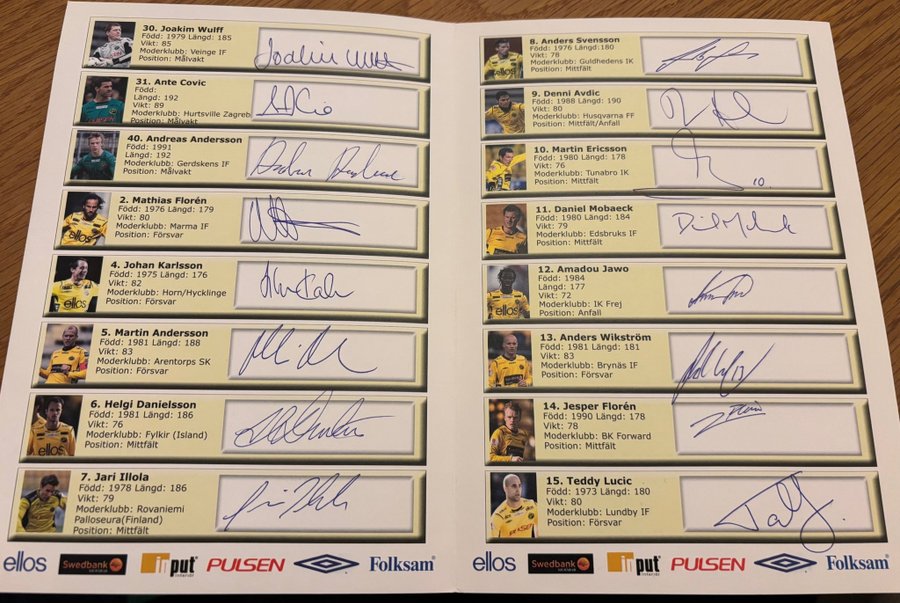 30. Joakim Wulff
Född: 1979 Längd: 185
Vikt: 85
Moderklubb: Veinge IF
Position: Målvakt
Joakim Wulff
31. Ante Covic
Född:
Längd: 192
Vikt: 89
Moderklubb: Hurtsville Zagreb
Position: Målvakt
40. Andreas Andersson
Född: 1991
Längd: 192
Moderklubb: Gerdskens IF
Position: Målvakt
2. Mathias Florén
Född: 1976 Längd: 179
Vikt: 80
Moderklubb: Marma IF
Position: Försvar
ellos
4. Johan Karlsson
Född: 1975 Längd: 176
Vikt: 82
Moderklubb: Horn/Hycklinge
Position: Försvar
ellos
5. Martin Andersson
Född: 1981 Längd: 188
Vikt: 83
Moderklubb: Arentorps SK
Position: Försvar
6. Helgi Danielsson
Född: 1981 Längd: 186
Vikt: 76
Moderklubb: Fylkir (Island)
Position: Mittfält
7. Jari Illola
Född: 1978 Längd: 186
Vikt: 79
Moderklubb: Rovaniemi
Palloseura(Finland)
Position: Mittfält
ellos Swedbank input interiör PULSEN Folksam
8. Anders Svensson
Född: 1976 Längd:180
Vikt: 78
Moderklubb: Guldhedens IK
Position: Mittfält
ellos
9. Denni Avdic
Född: 1988 Längd: 190
Vikt: 80
Moderklubb: Husqvarna FF
Position: Mittfält/Anfall
10. Martin Ericsson
Född: 1980 Längd: 178
Vikt: 76
Moderklubb: Tunabro IK
Position: Mittfält
10.
11. Daniel Mobaeck
Född: 1980 Längd: 184
Vikt: 79
Moderklubb: Edsbruks IF
Position: Mittfält
12. Amadou Jawo
Född: 1984
Längd: 177
Vikt: 72
Moderklubb: IK Frej
Position: Anfall
ellos
13. Anders Wikström
Född: 1981 Längd: 181
Vikt: 83
Moderklubb: Brynäs IF
Position: Försvar
13
14. Jesper Florén
Född: 1990 Längd: 178
Vikt: 78
Moderklubb: BK Forward
Position: Mittfält
15. Teddy Lucic
Född: 1973 Längd: 180
Vikt: 80
Moderklubb: Lundby IF
Position: Försvar
ellos Swedbank input interiör PULSEN Folksam